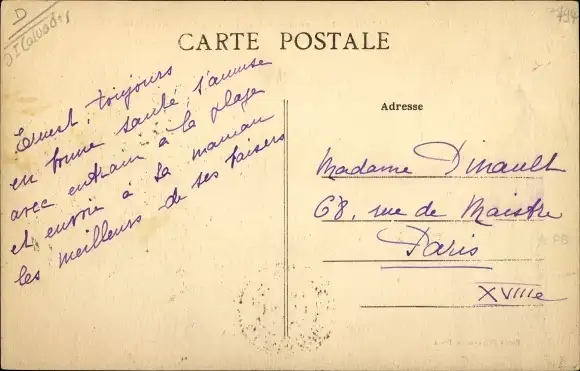 D
Calvados
794
CARTE POSTALE
Adresse
Ernest, toujours
en bonne santé, s'amuse
avec entrain à la plage
et envoie à sa maman
les meilleurs de ses baisers
Madame Dinault
68, rue de Maistre
Paris
XVIIIe